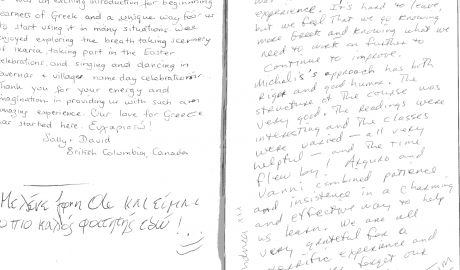 was an exciting introduction for beginning
learners of Greek and a unique way for us
to start using it in many situations. We
enjoyed exploring the breath taking scenery
of Ikaria, taking part in the Easter
celebrations, and singing and dancing in
villages name day celebrations.
Thank you for your energy and
imagination in providing us with such an
amazing experience. Our love for Greece
has started here. Ευχαριστώ!
Sally, David
British Columbia, Canada
Με λένε Ole και είμαι
ο πιο καλός φοιτητής εδώ!
experience. It's hard to leave,
but we feel that we go knowing
more Greek and knowing what we
need to work on further to
continue to improve.
Michalis's approach has both
rigor and good humor. The
structure of the course was
very good. The readings were
interesting and the classes
were varied - all very
helpful - and the time
flew by! Argyro and
Yanni combined patience
and insistence in a charming
and effective way to help
us learn. We are all
very grateful for a
terrific experience and
forget our